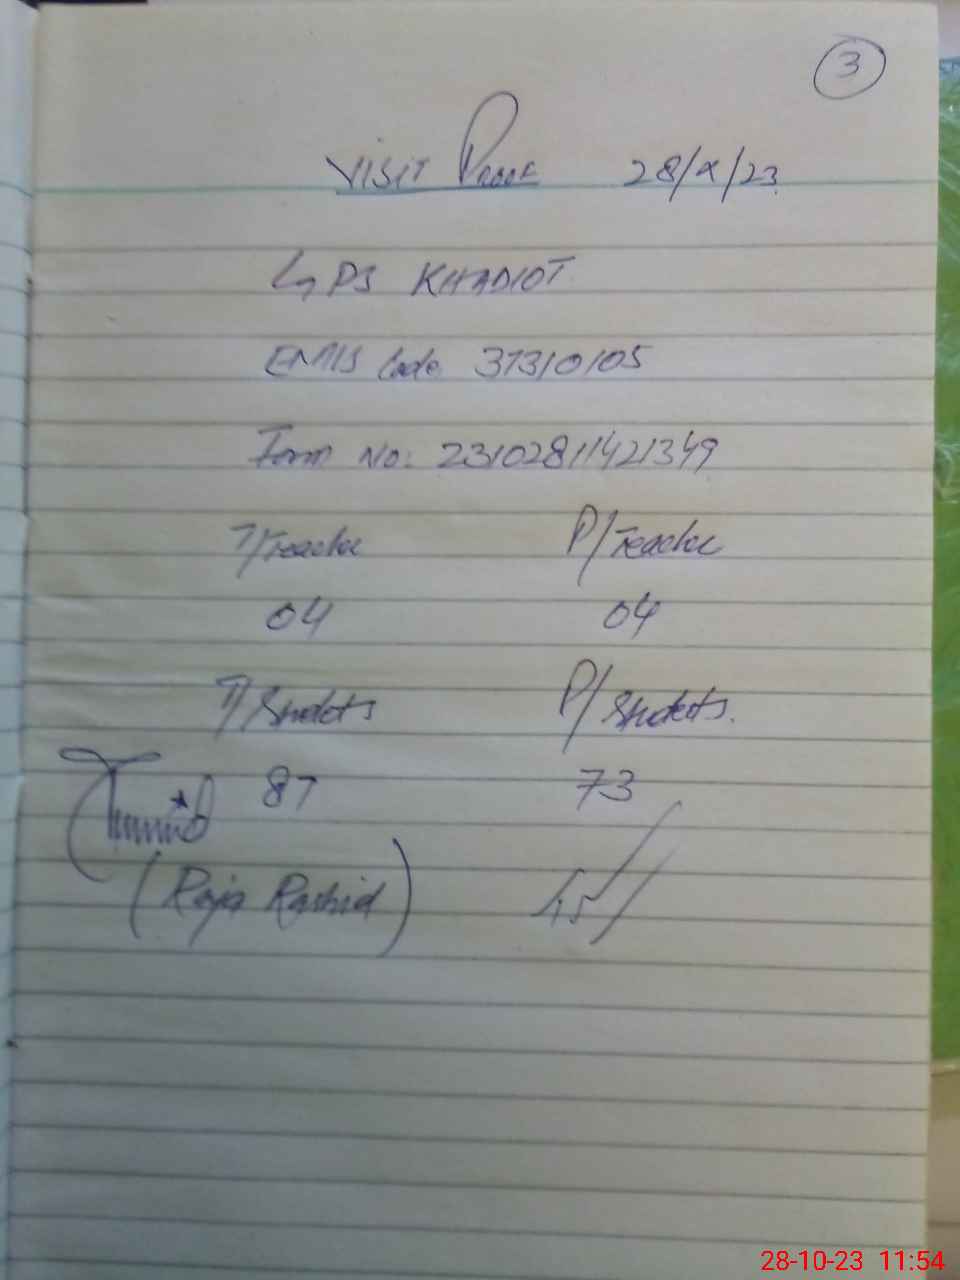 3
VISIT Proof 28/X/23
GPS KHADIOT
EMIS Code 37310105
Form No: 23102811421349
T/Teacher P/Teacher
04 04
T/Students P/Students.
87 73
(Raja Rashid)
28-10-23 11:54